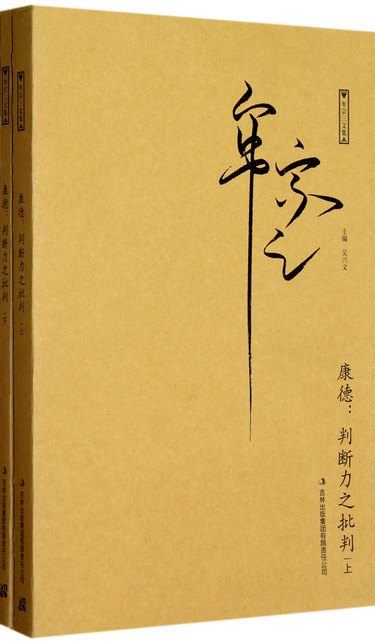 牟宗三
牟宗三文集
主编 吴兴文
康德：判断力之批判 上
吉林出版集团有限责任公司
牟宗三文集
康德：判断力之批判 上
吉林出版集团有限责任公司
牟宗三文集
康德：判断力之批判 下
吉林出版集团有限责任公司